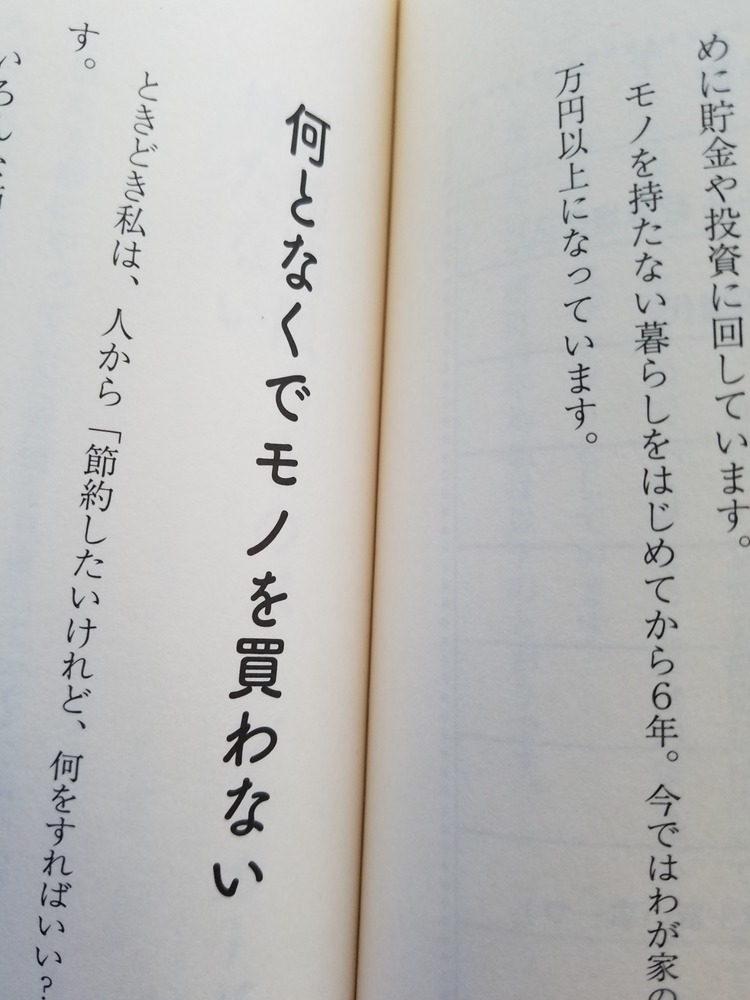 めに貯金や投資に回しています。
モノを持たない暮らしをはじめてから6年。今ではわが家の
万円以上になっています。
何となくでモノを買わない
ときどき私は、人から「節約したいけれど、何をすればいい?
す。